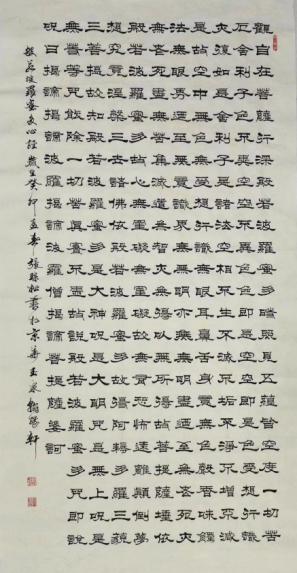 觀自在菩薩行深般若波羅蜜多時照見五蘊皆空度一切苦
厄舍利子色不異空空不異色色即是空空即是色受想行識
亦復如是舍利子是諸法空相不生不滅不垢不淨不增不減
是故空中無色無受想行識無眼耳鼻舌身意無色聲香味觸
法無眼界乃至無意識界無無明亦無無明盡乃至無老死亦
無老死盡無苦集滅道無智亦無得以無所得故菩提薩埵依
般若波羅蜜多故心無罣礙無罣礙故無有恐怖遠離顛倒夢
想究竟涅槃三世諸佛依般若波羅蜜多故得阿耨多羅三藐
三菩提故知般若波羅蜜多是大神咒是大明咒是無上咒是
無等等咒能除一切苦真實不虛故說般若波羅蜜多咒即說
咒曰揭諦揭諦波羅揭諦波羅僧揭諦菩提薩婆訶
般若波羅蜜多心經歲在癸卯孟春張松書於京華玉泉軒